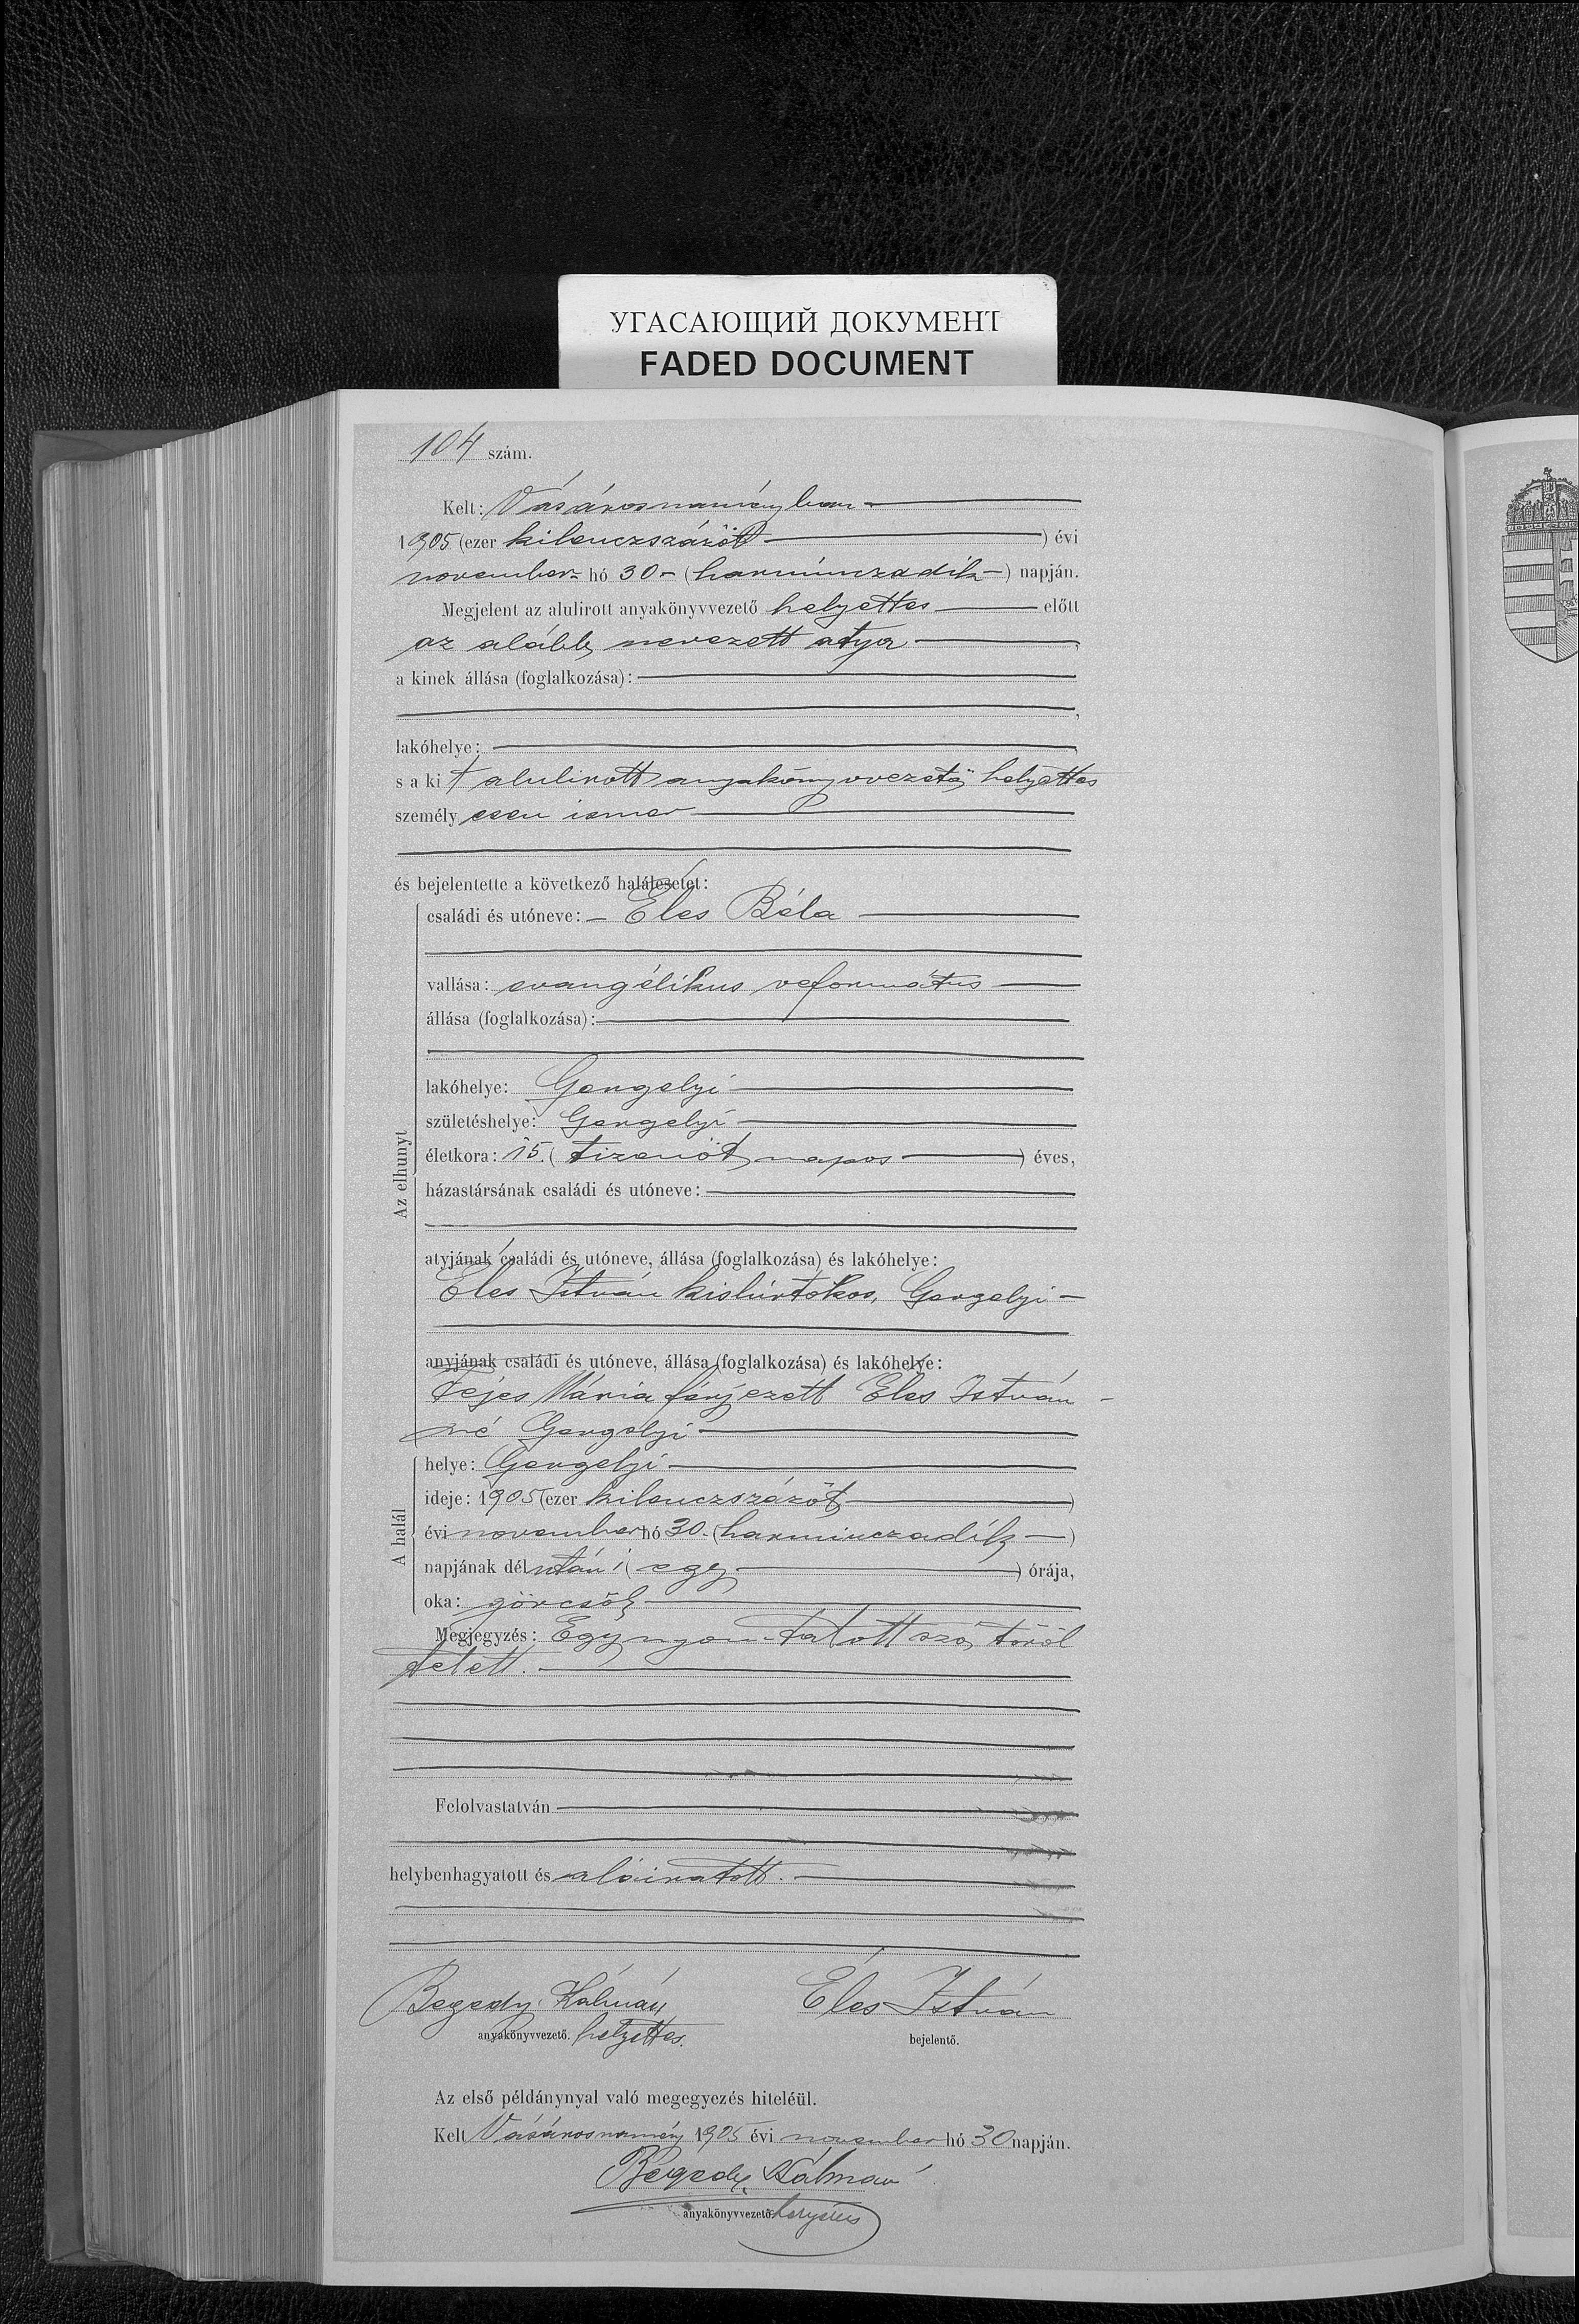 УГАСАЮЩИЙ ДОКУМЕНТ
FADED DOCUMENT
104 szám.
Kelt: Vásárosnaményban
1905 (ezer kilenczszázöt) évi
november hó 30 (harminczadik) napján.
Megjelent az alulirott anyakönyvvezető helyettes előtt
az alább nevezett atya,
a kinek állása (foglalkozása):
,
lakóhelye:,
s a kit alulirott anyakönyvvezető helyettes
személyesen ismer
és bejelentette a következő halálesetet:
Az elhunyt
családi és utóneve: Éles Béla
vallása: evangélikus református
állása (foglalkozása):
lakóhelye: Gergelyi
születéshelye: Gergelyi
életkora: 15. (tizenöt napos) éves,
házastársának családi és utóneve:
atyjának családi és utóneve, állása (foglalkozása) és lakóhelye:
Éles István kisbirtokos, Gergelyi
anyjának családi és utóneve, állása (foglalkozása) és lakóhelye:
Fejes Mária férjezett Éles István
né Gergelyi
A halál
helye: Gergelyi
ideje: 1905 (ezer kilenczszázöt)
évi november hó 30. (harminczadik)
napjának délután i (egy) órája,
oka: görcsök
Megjegyzés: Egy nyomtatott szó töröl
tetett.
Felolvastatván
helybenhagyatott és aláiratott.
Begedy Kálmán Éles István
anyakönyvvezető. helyettes. bejelentő.
Az első példánynyal való megegyezés hiteléül.
Kelt Vásárosnamény 1905 évi november hó 30 napján.
Begedy Kálmán
anyakönyvvezető helyettes